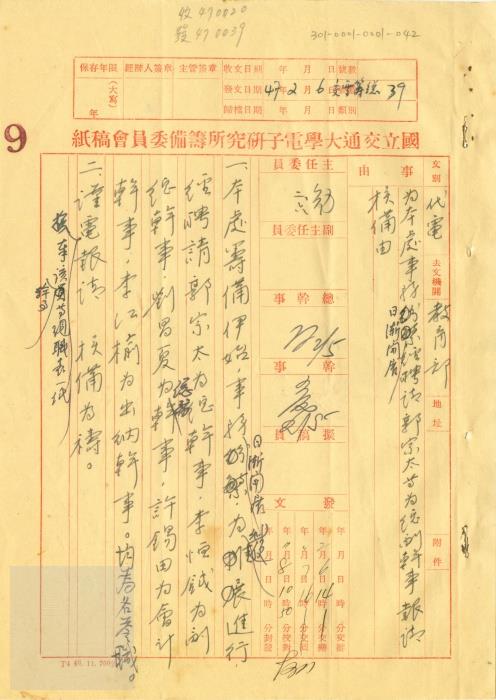 收 470020
發 470039
301-0001-0001-042
9
保存年限 (大寫) 年
經辦人簽章
主管簽章
收文日期 年 月 日 號數
發文日期 47 2 6 日 交電籌總 39
歸檔日期 年 月 日 類別
國立交通大學電子研究所籌備委員會稿紙
文別 代電
去文機關 教育部
地址
附件
事由
為本處事務日漸開展經聘請郭宗太等為總副幹事報請
核備由
主任委員
副主任委員
總幹事
2/5
幹事
擬稿員
發文
年 月 日 時 分交辦
年 月 日 時 分校對
年 月 日 時 分封發
一、本處籌備伊始，事務日漸開展，為利進行
經聘請郭宗太為總幹事，李恒鉞為副
總幹事，劉昌夏為總務幹事，許錫田為會計
幹事，李江榆為出納幹事。均
二、謹電報請 核備為禱。